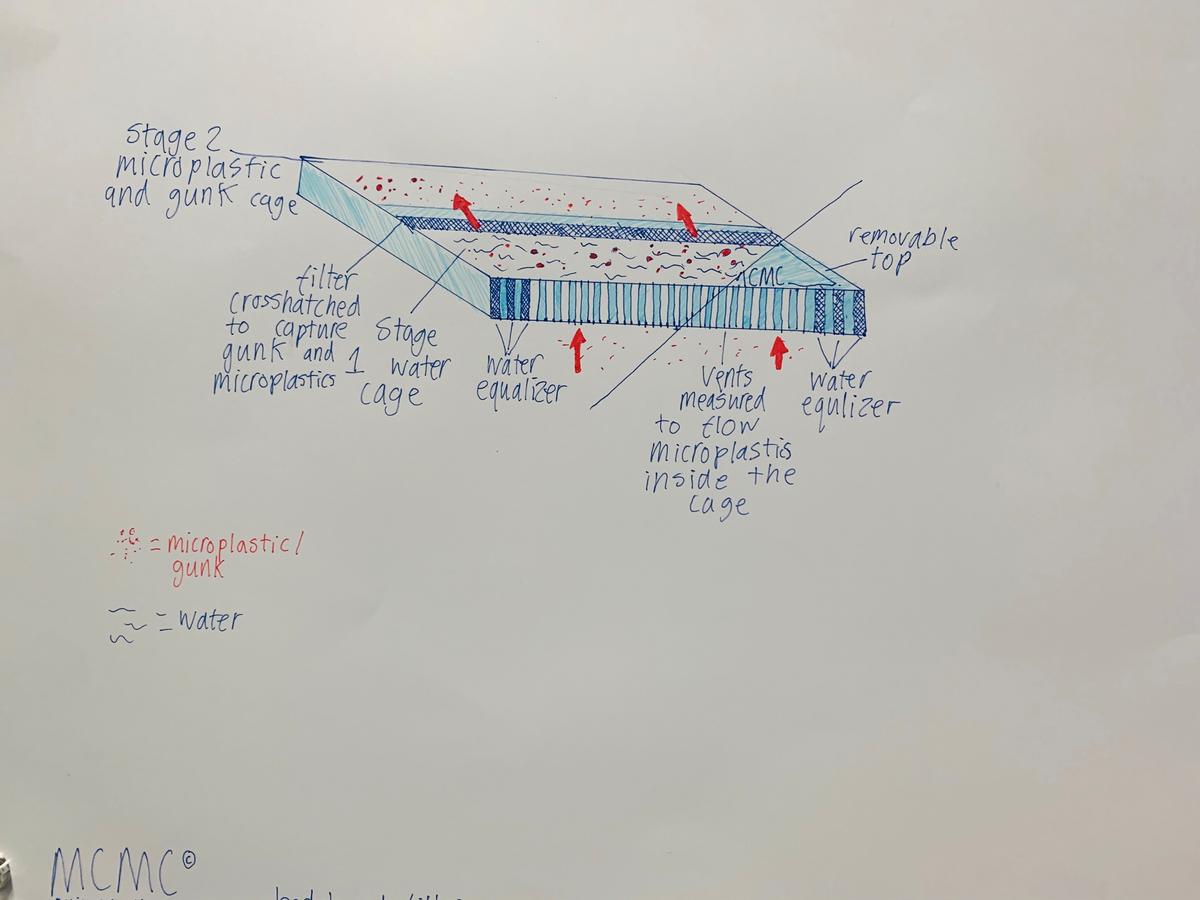 Stage 2
microplastic
and gunk cage
removable
top
CMC
filter
crosshatched
to capture
gunk and
microplastics
Stage
1 water
cage
water
equalizer
vents
measured
to flow
microplastics
inside the
cage
water
equlizer
= microplastic/
gunk
= water
MCMC©